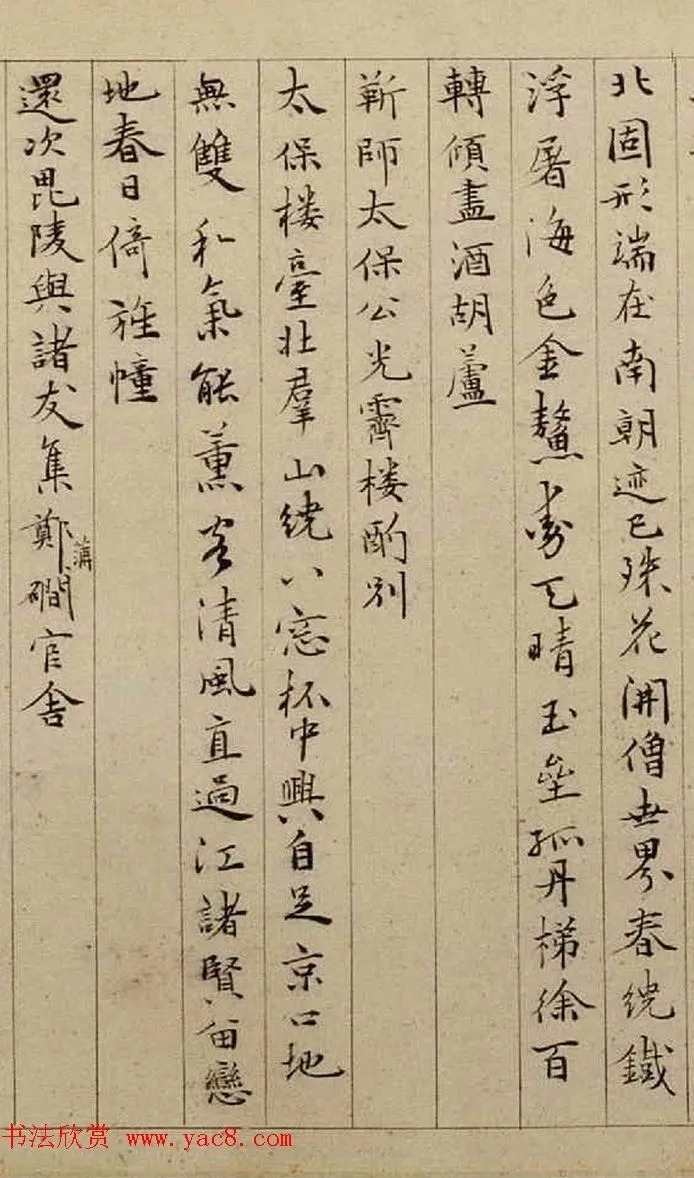 北固形端在南朝迹已殊花開僧世界春繞鐵
浮屠海色金鰲天晴玉壘孤丹梯徐百
轉傾盡酒胡蘆
靳師太保公光霽楼酌別
太保楼臺壯羣山繞八窓杯中興自足京口地
無雙和氣能薰客清風直過江諸賢畄戀
地春日倚旌幢
還次毘陵與諸友集鄭蒲磵官舍
书法欣赏 www.yac8.com